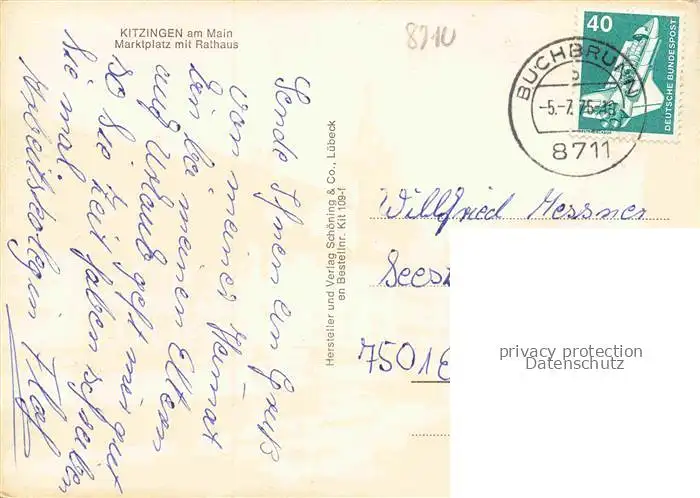 KITZINGEN am Main
Marktplatz mit Rathaus
8710
Sende Ihnen ein Gruß
von meiner Heimat
bin bei meinen Eltern
auf Urlaub geht mir gut
so Sie Zeit haben schreiben
Sie mal
Arbeitskolegin
Hersteller und Verlag Schöning & Co., Lübeck
en Bestellnr. Kit 109-f
40
DEUTSCHE BUNDESPOST
BUCHBRUNN
b
-5.-7.75-18
8711
Willfried Messner
Sees
7501 E
privacy protection
Datenschutz